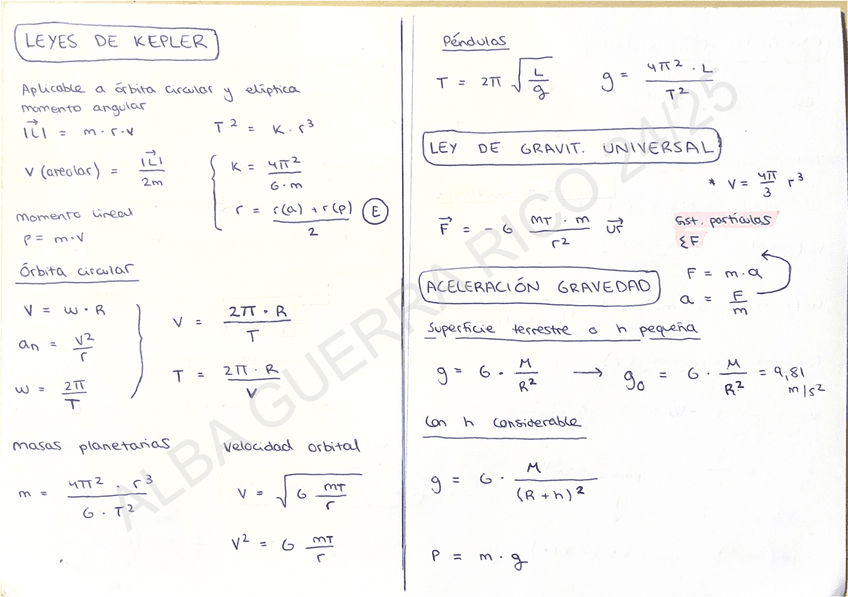 LEYES DE KEPLER
Aplicable a órbita circular y elíptica
momento angular
|L⃗| = m · r · v
T² = K · r³
v (areolar) = |L⃗| / 2m
K = 4π² / G · m
r = r(a) + r(p) / 2 (E)
momento lineal
p = m · v
Órbita circular
V = w · R
an = v² / r
w = 2π / T
V = 2π · R / T
T = 2π · R / V
masas planetarias
m = 4π² · r³ / G · T²
Velocidad orbital
V = √(G mT / r)
V² = G mT / r
Péndulos
T = 2π √(L / g)
g = 4π² · L / T²
LEY DE GRAVIT. UNIVERSAL
* V = 4π / 3 r³
F⃗ = - G mT · m / r² u⃗r
Sist. partículas
ΣF
F = m · a
a = F / m
ACELERACIÓN GRAVEDAD
Superficie terrestre o h pequeña
g = G · M / R² → g₀ = G · M / R² = 9,81 m/s²
Con h considerable
g = G · M / (R + h)²
P = m · g
ALBA GUERRA RICO 24/25